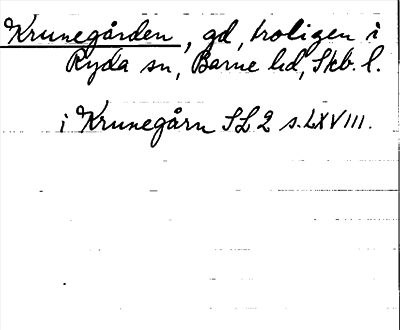 Krunegården, gd, troligen i
Ryda sn, Barne hd, Skb. l.
i Krunegårn SL 2 s. LXVIII.